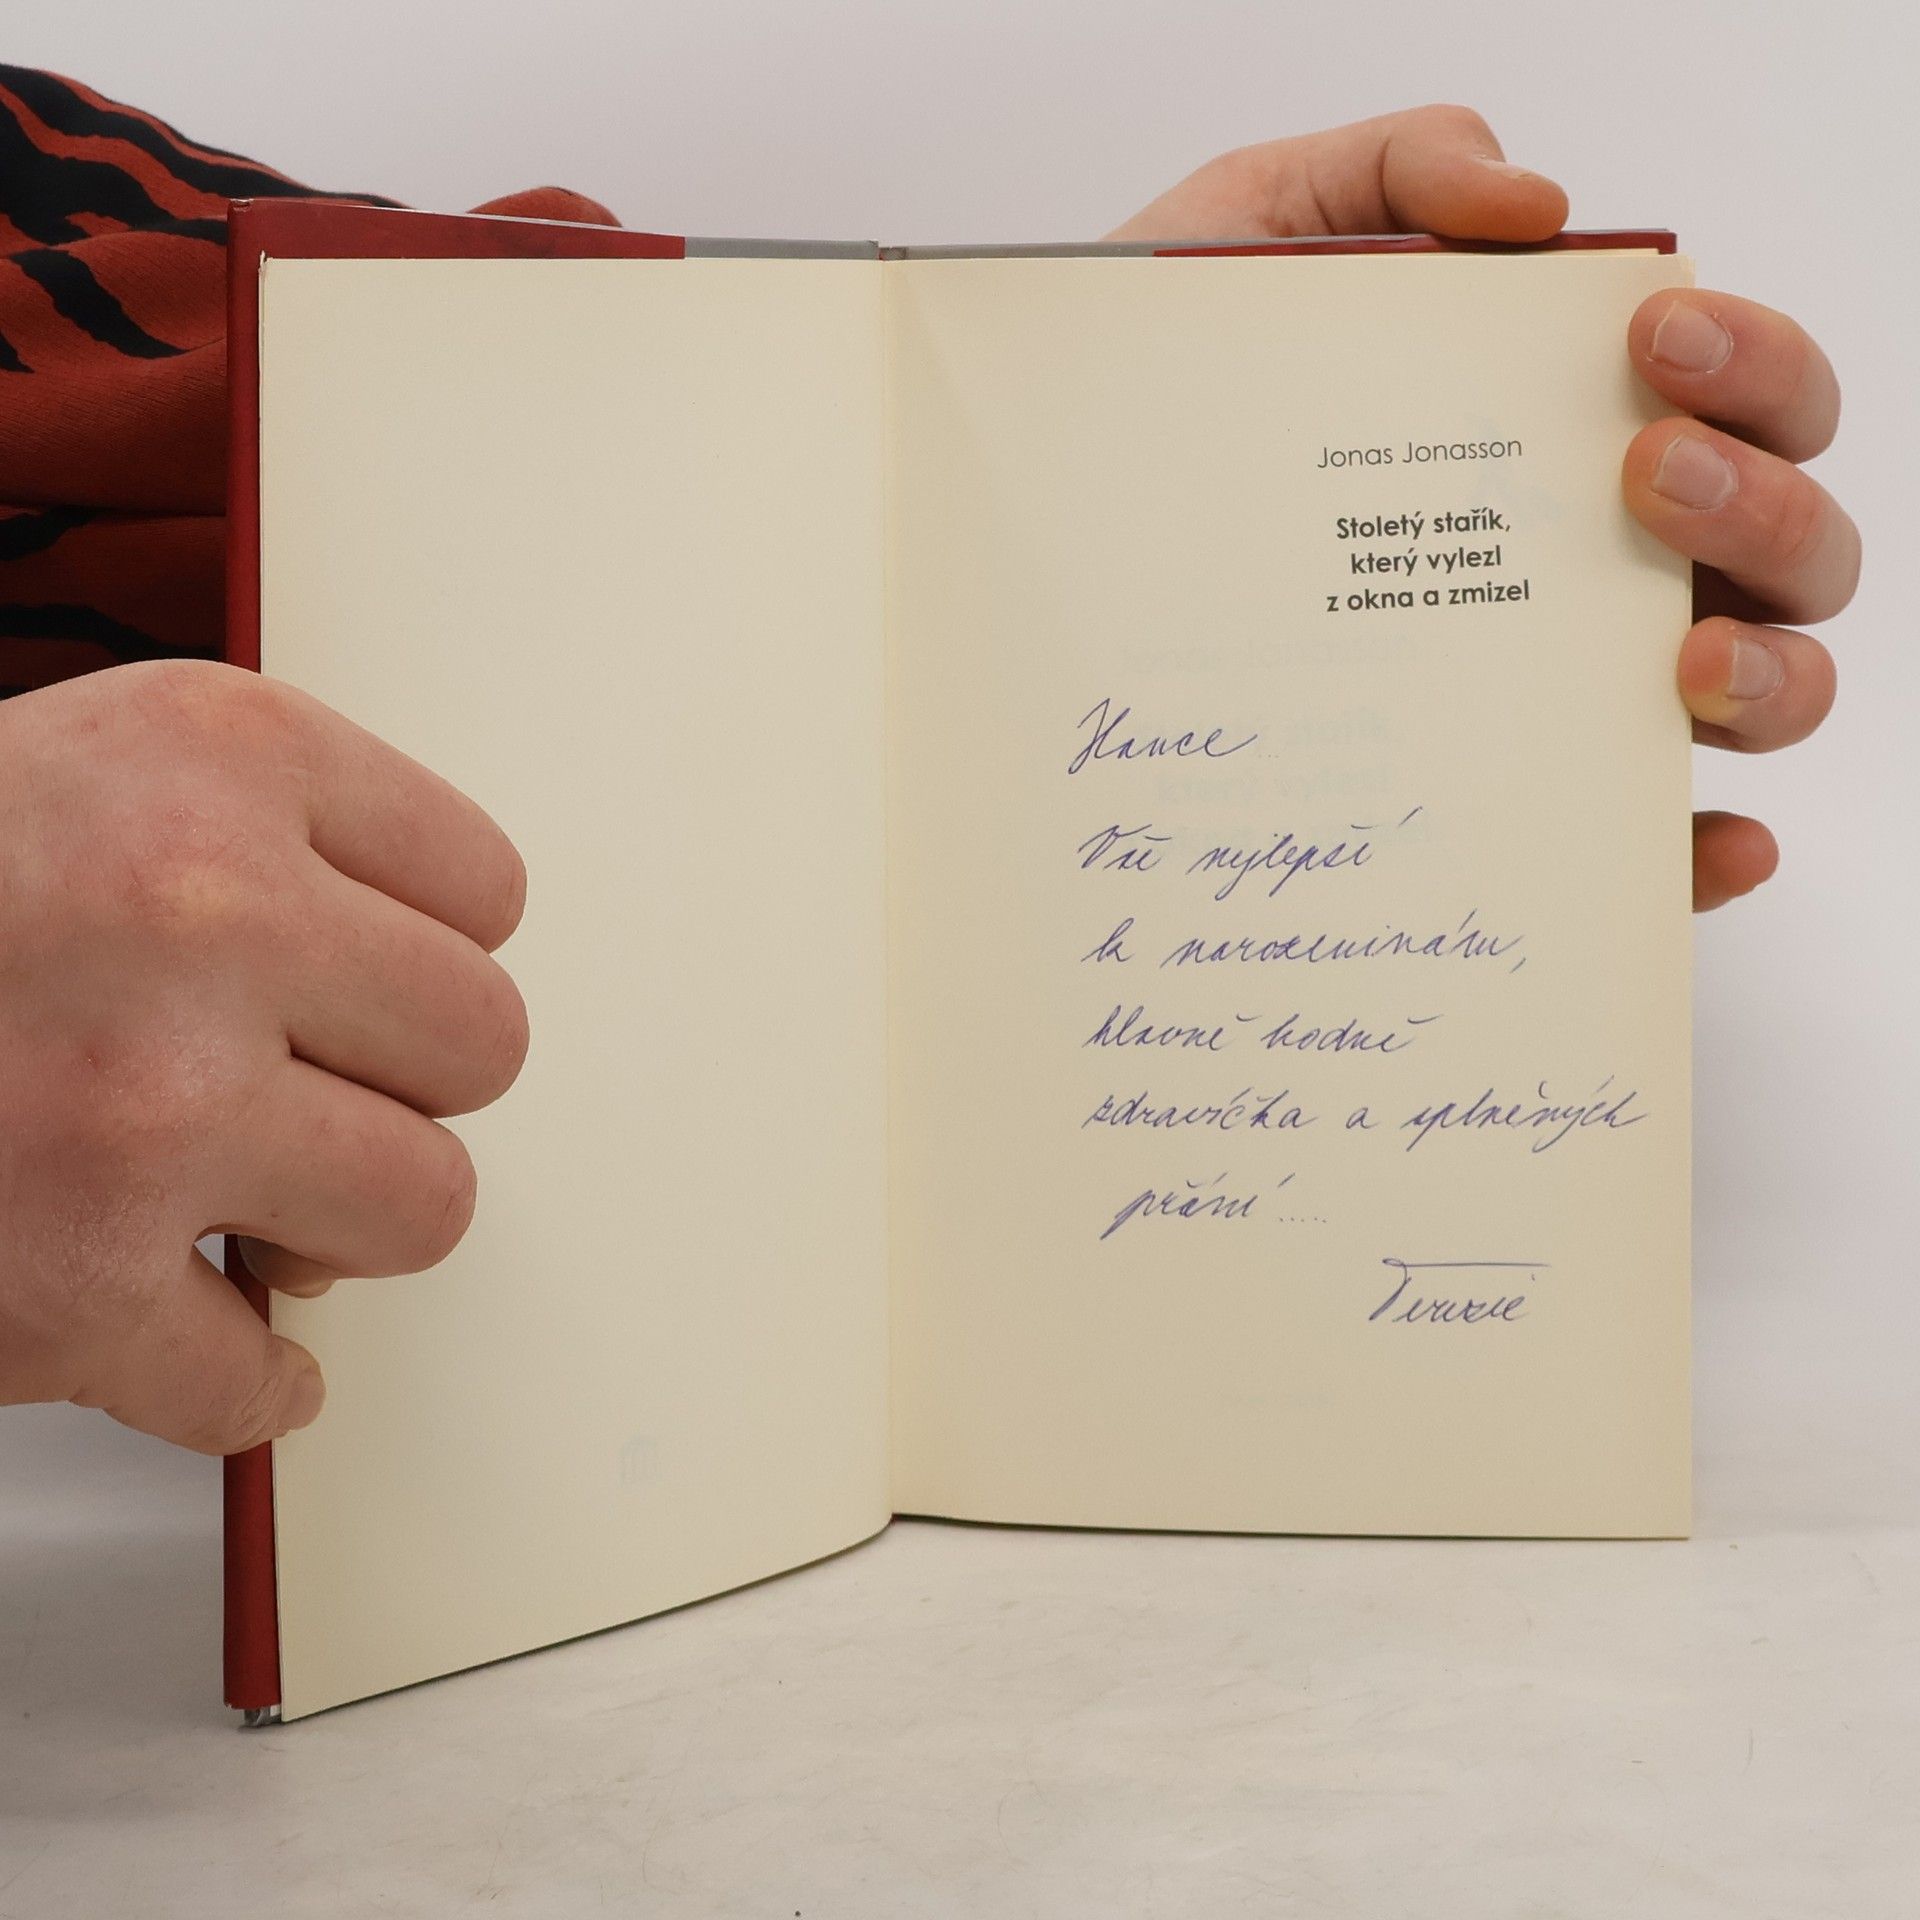 Jonas Jonasson
Stoletý stařík,
který vylezl
z okna a zmizel
Hance...
Vše nejlepší
k narozeninám,
hlavně hodně
zdravíčka a splněných
přání.....
Terezie